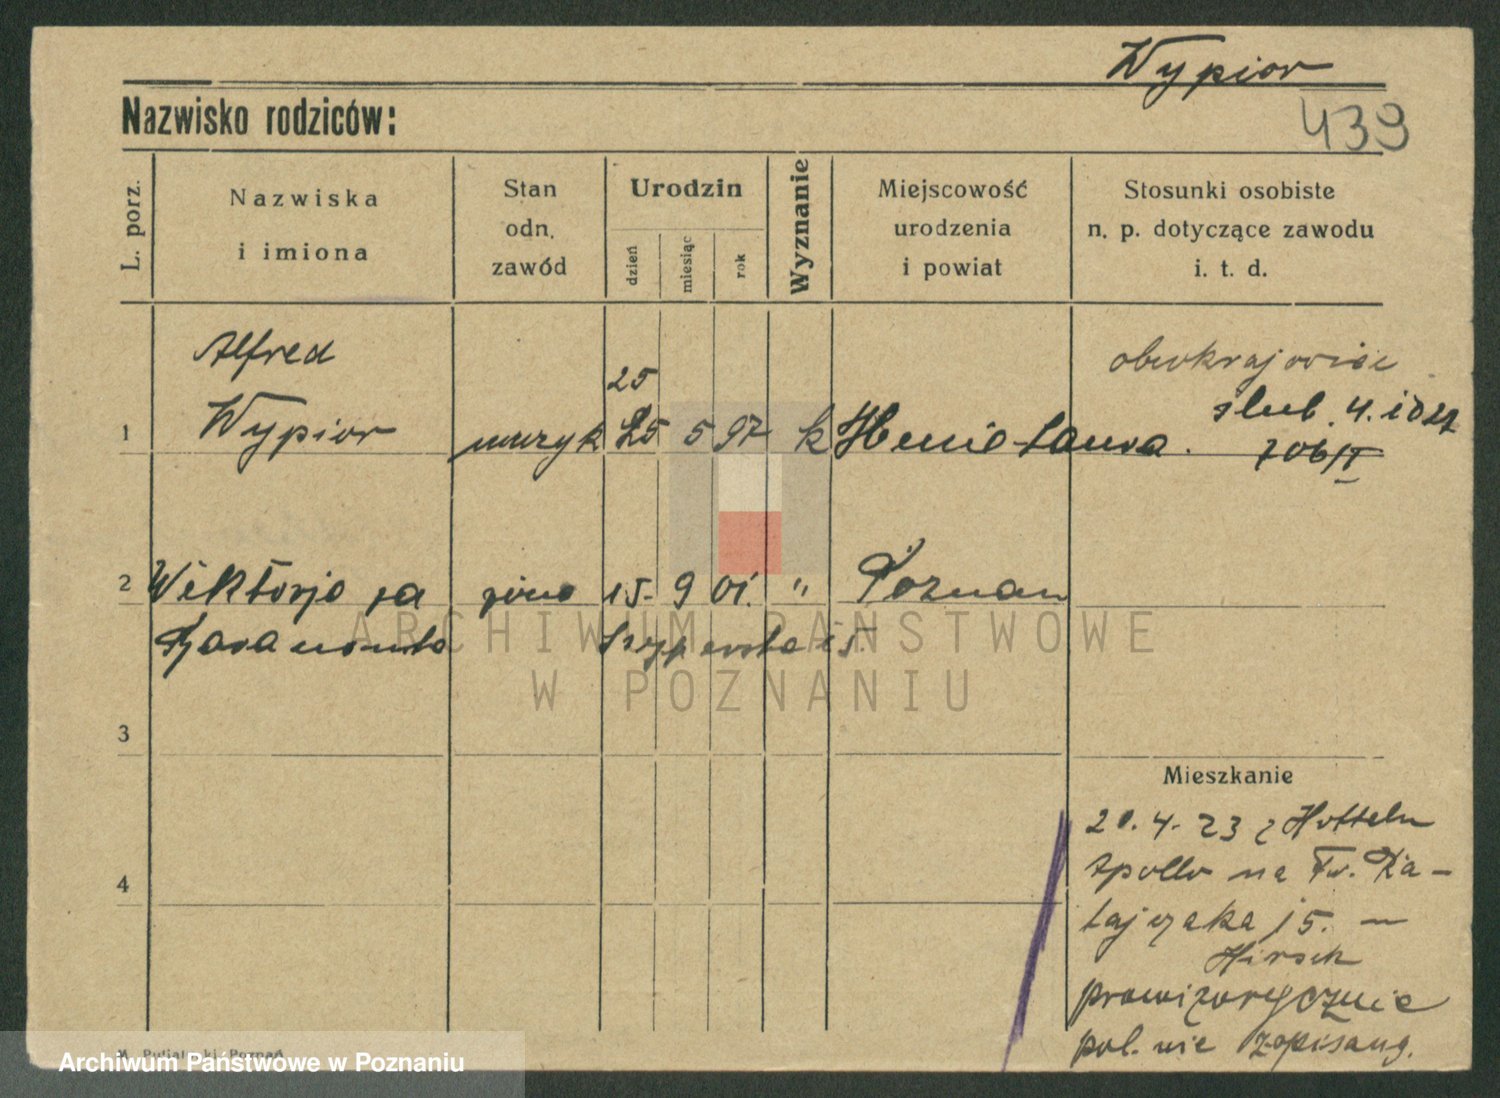 Wypior
Nazwisko rodziców:
439
L. porz.
Nazwiska
i imiona
Stan
odn.
zawód
Urodzin
dzień
miesiąc
rok
Wyznanie
Miejscowość
urodzenia
i powiat
Stosunki osobiste
n. p. dotyczące zawodu
i. t. d.
Alfred
25
obcokrajowiec
1 Wypior muzyk 25 5 97 k
ślub. 4.
706/II
2 Wiktorja za żona 15. 9 01. " Poznan
15.
ARCHIWUM PAŃSTWOWE
W POZNANIU
3
Mieszkanie
20. 4. 23 z Hottelu
4 Apollo na Fr. Ra-
tajczaka 15. —
Hirsch
prowizorycznie
pol. nie zapisany.
Poznań
Archiwum Państwowe w Poznaniu